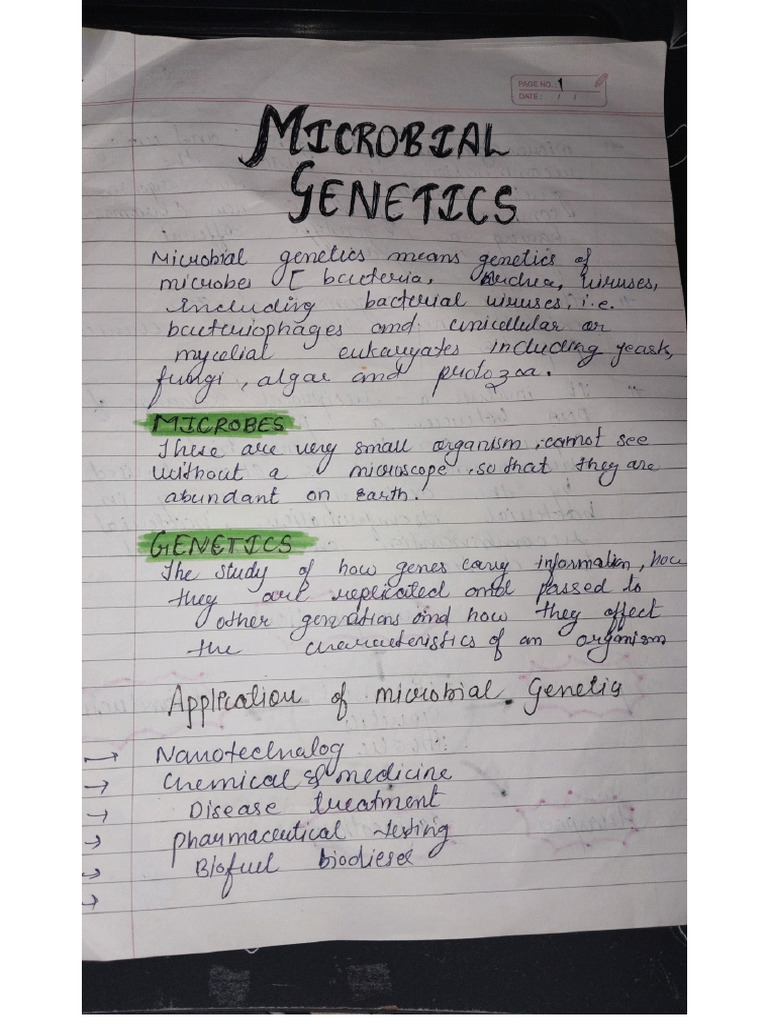 PAGE NO.: 1
DATE: / /
MICROBIAL
GENETICS
Microbial genetics means genetics of
microbes [ bacteria, Archea, viruses,
Including bacterial viruses, i.e.
bacteriophages and unicellular or
mycelial eukaryates including yeast,
fungi, algae and protozoa.
MICROBES
These are very small organism, cannot see
without a microscope, so that they are
abundant on Earth.
GENETICS
The study of how genes carry information, how
they are replicated and passed to
other generations and how they affect
the characteristics of an organism
Application of microbial Genetics
→ Nanotechnalog
→ Chemical & medicine
→ Disease treatment
→ Pharmaceutical Testing
→ Biofuel biodiesel
→